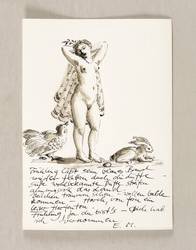 Frühling läßt sein blaues Band
wieder flattern durch die Lüfte
süße wohlbekannte Düfte streifen
ahnungsvoll das Land
Veilchen träumen schon – wollen balde
kommen – Horch, von fern ein
leiser Harfenton
Frühling, ja du bist's – Dich hab
ich vernommen E. M.